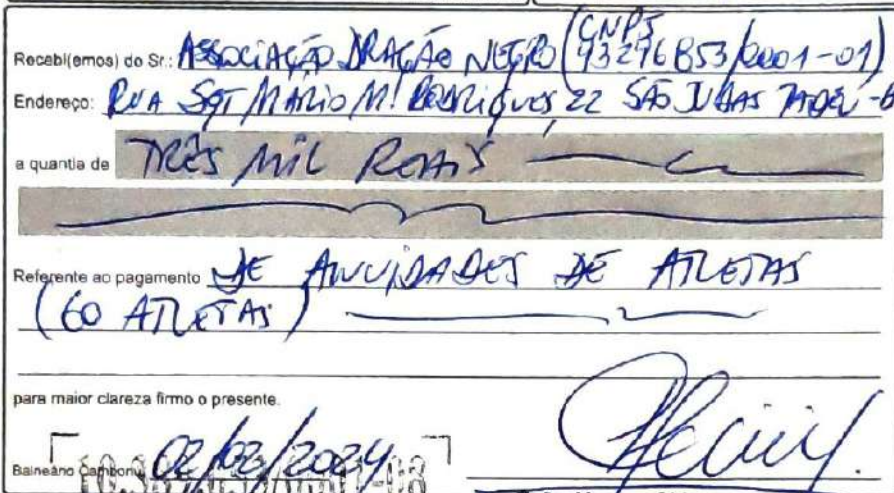 CNPJ
Recebi(emos) do Sr.: ASSOCIAÇÃO DRAGÃO NEGRO ( 93276853/0001-01)
Endereço: RUA SGT MÁRIO M! RODRIGUES, 22 SÃO JUDAS TADEU -
a quantia de TRÊS MIL REAIS
Referente ao pagamento DE ANUIDADES DE ATLETAS
(60 ATLETAS)
para maior clareza firmo o presente.
Balneário Camboriú 02/02/2024